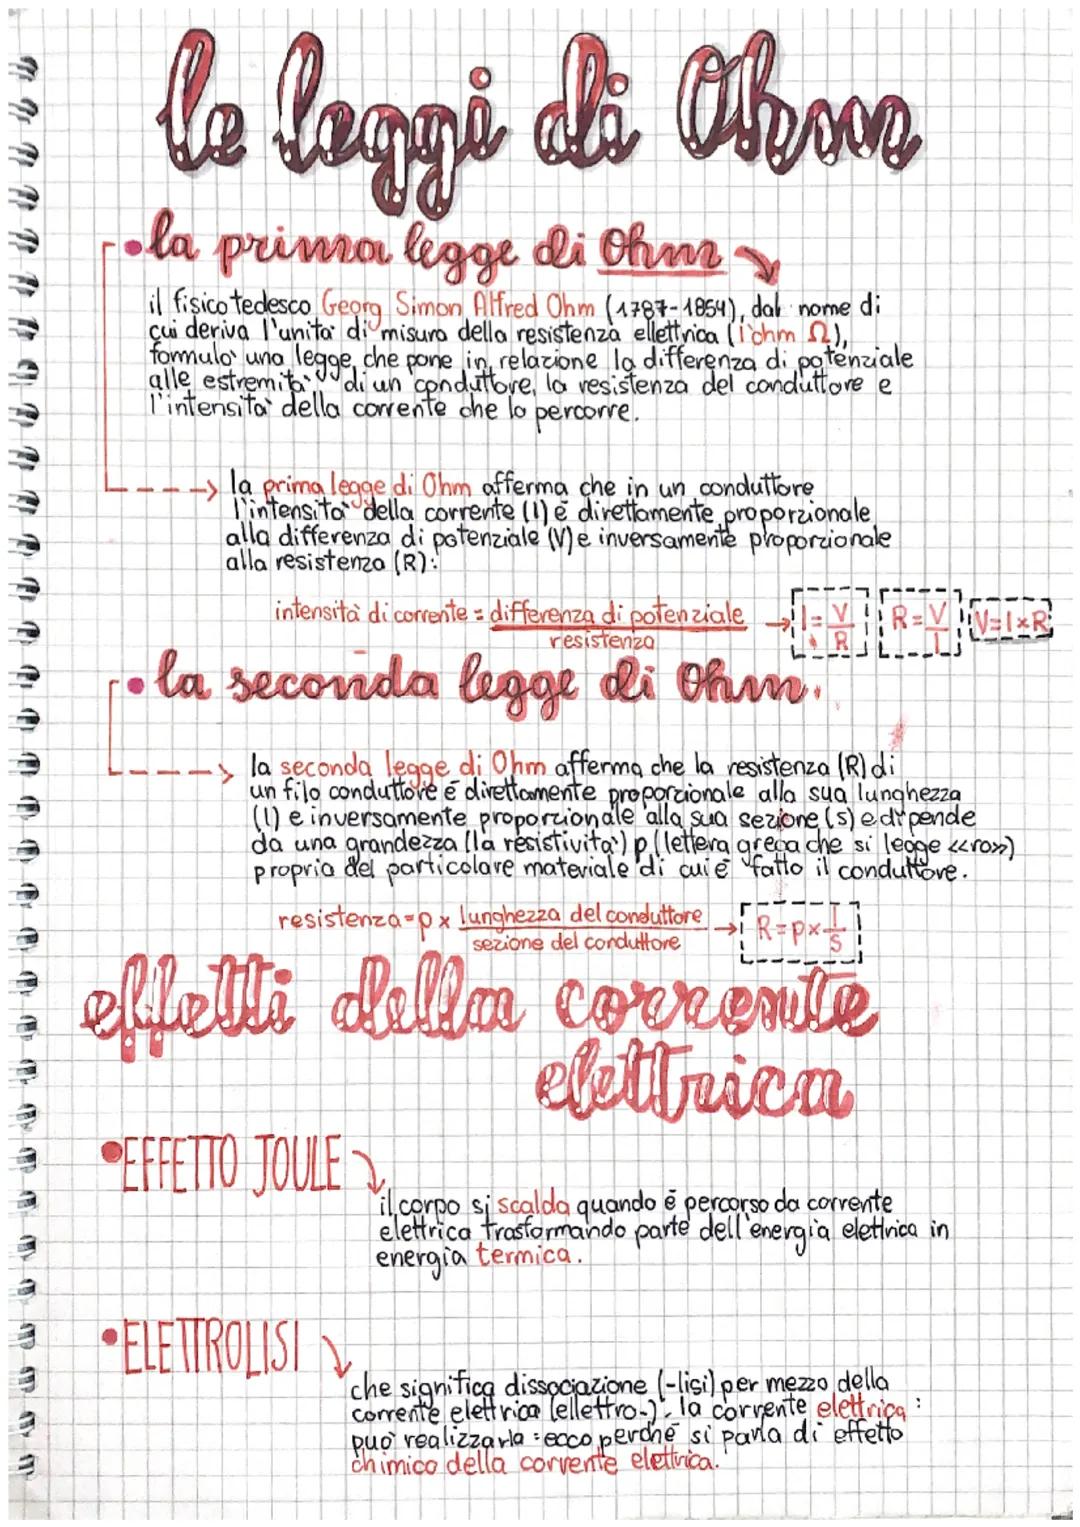 le leggi di Ohm
• la prima legge di Ohm
il fisico tedesco Georg Simon Alfred Ohm (1787-1854), dal nome di
cui deriva l'unità di misura della resistenza ellettrica (l'ohm Ω),
formulò una legge che pone in relazione la differenza di potenziale
alle estremità di un conduttore, la resistenza del conduttore e
l'intensità della corrente che lo percorre.
la prima legge di Ohm afferma che in un conduttore
l'intensità della corrente (I) è direttamente proporzionale
alla differenza di potenziale (V) e inversamente proporzionale
alla resistenza (R):
intensità di corrente = differenza di potenziale / resistenza → I = V/R R = V/I V = I × R
• la seconda legge di Ohm.
la seconda legge di Ohm afferma che la resistenza (R) di
un filo conduttore è direttamente proporzionale alla sua lunghezza
(l) e inversamente proporzionale alla sua sezione (s) e dipende
da una grandezza (la resistività) ρ (lettera greca che si legge <<ro>>)
propria del particolare materiale di cui è fatto il conduttore.
resistenza = ρ × lunghezza del conduttore / sezione del conduttore → R = ρ × l/s
effetti della corrente
elettrica
• EFFETTO JOULE
il corpo si scalda quando è percorso da corrente
elettrica trasformando parte dell'energia elettrica in
energia termica.
• ELETTROLISI
che significa dissociazione (-lisi) per mezzo della
corrente elettrica (ellettro-). la corrente elettrica :
può realizzarla : ecco perché si parla di effetto
chimico della corrente elettrica.